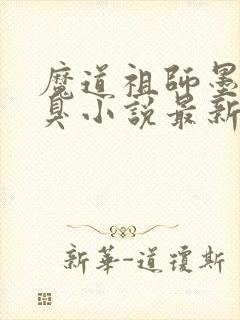 魔道祖師墨
臭小說最新
新華-道瓊斯